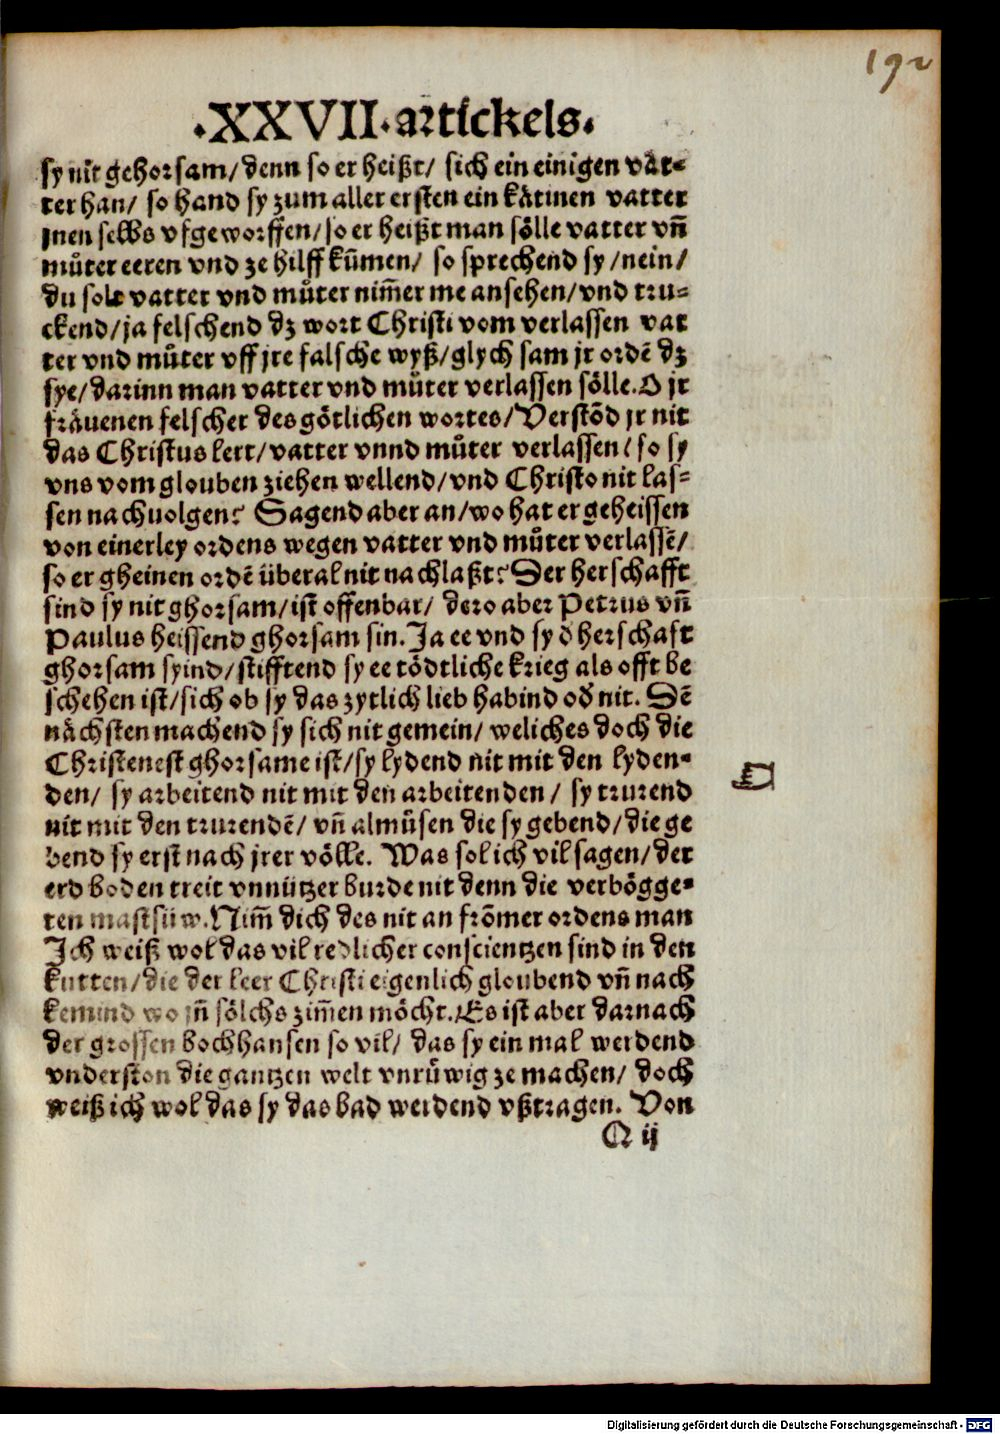 192
·XXVII·artickels.
sy nit gehorsam/ denn so er heißt/ sich ein einigen vat-
ter han/ so hand sy zum aller ersten ein kätinen vatter
jnen selbs vfgeworffen/ so er heißt man sölle vatter vñ
můter eeren vnd ze hilff kum̃en/ so sprechend sy/ nein/
du solt vatter vnd můter nim̃er me ansehen/ vnd tru-
ckend/ ja felschend dz wort Christi vom verlassen vat
ter vnd můter vff jre falsche wyß/ glych sam jr ordẽ dz
sye/ darinn man vatter vnd můter verlassen sölle. O jr
fräuenen felscher des götlichen wortes/ Verstõd jr nit
das Christus lert/ vatter vnnd můter verlassen/ so sy
vns vom glouben ziehen wellend/ vnd Christo nit las-
sen nachuolgen? Sagend aber an/ wo hat er geheissen
von einerley ordens wegen vatter vnd můter verlassẽ/
so er gheinen ordẽ überal nit nachlaßt? Der herschafft
sind sy nit ghorsam/ ist offenbar/ dero aber Petrus vñ
Paulus heissend ghorsam sin. Ja ee vnd sy d̕ herschaft
ghorsam syind/ stifftend sy ee tödtliche krieg als offt be
schehen ist/ sich ob sy das zytlich lieb habind od̕ nit. Dẽ
nächsten machend sy sich nit gemein/ weliches doch die
Christenest ghorsame ist/ sy lydend nit mit den lyden-
den/ sy arbeitend nit mit den arbeitenden/ sy trurend
nit mit den trurendẽ/ vñ almůsen die sy gebend/ die ge
bend sy erst nach jrer völle. Was sol ich vil sagen/ der
erdboden treit vnnützer burde nit denn die verbögge-
ten mastsüw. Nim̃ dich des nit an frõmer ordens man
Ich weiß wol das vil redlicher conscientzen sind in den
kutten/ die der leer Christi eigenlich gloubend vñ nach
kemind wo jñ sölchs zim̃en möcht. Es ist aber darnach
der grossen bochhansen so vil/ das sy ein mal werdend
vnderston die gantzen welt vnrůwig ze machen/ doch
weiß ich wol das sy das bad werdend vßtragen. Von
Q ij
Digitalisierung gefördert durch die Deutsche Forschungsgemeinschaft - DFG